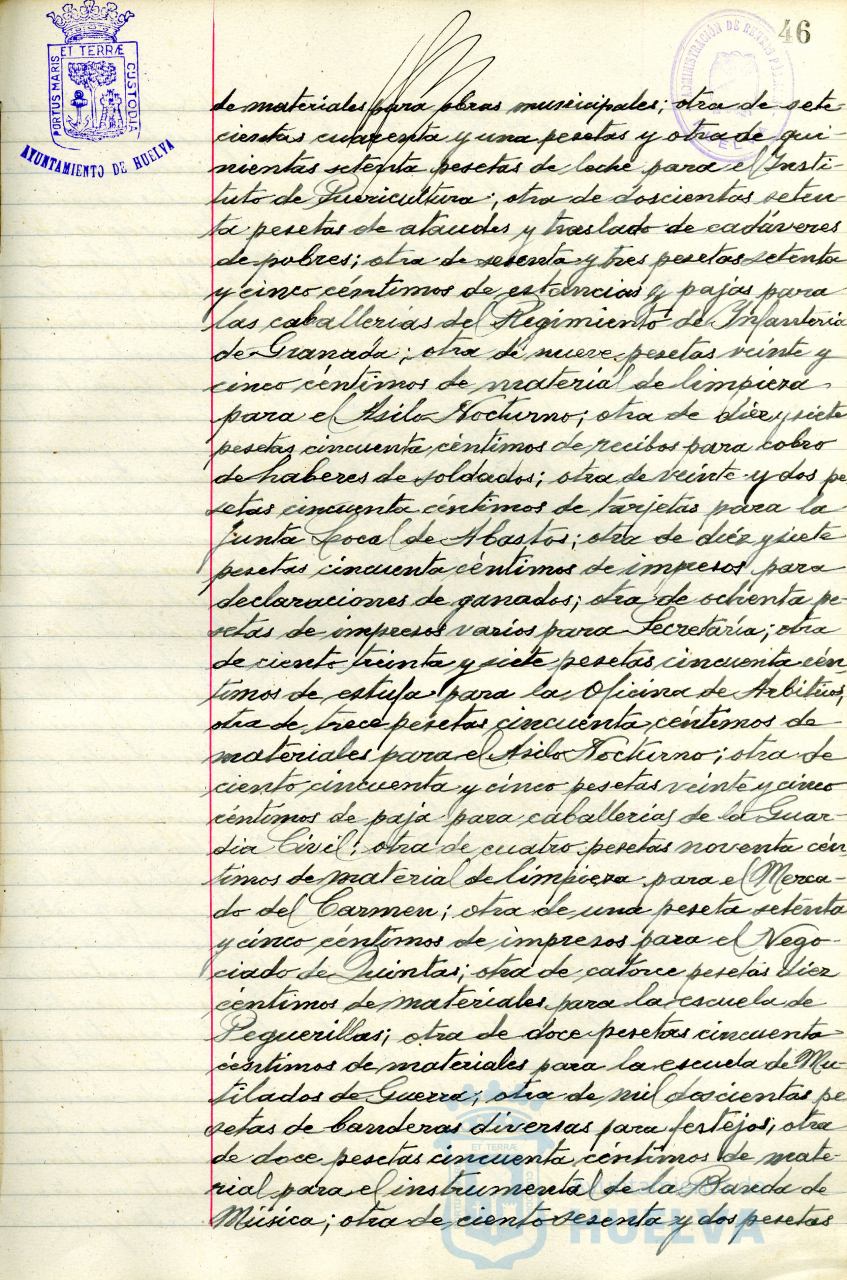 46
PORTUS MARIS ET TERRÆ CUSTODIA
AYUNTAMIENTO DE HUELVA
de materiales para obras municipales; otra de sete-
cientas cuarenta y una pesetas y otra de qui-
nientas setenta pesetas de leche para el Insti-
tuto de Puericultura; otra de doscientas seten-
ta pesetas de ataudes y traslado de cadáveres
de pobres; otra de sesenta y tres pesetas setenta
y cinco céntimos de estancias y pajas para
las caballerías del Regimiento de Infanteria
de Granada; otra de nueve pesetas veinte y
cinco céntimos de material de limpieza
para el Asilo Nocturno; otra de diez y siete
pesetas cincuenta céntimos de recibos para cobro
de haberes de soldados; otra de veinte y dos pe
setas cincuenta céntimos de tarjetas para la
Junta Local de Abastos; otra de diéz y siete
pesetas cincuenta céntimos de impresos para
declaraciones de ganados; otra de ochenta pe-
setas de impresos varios para Secretaría; otra
de ciento treinta y siete pesetas cincuenta cén-
timos de estufa para la Oficina de Arbitrios;
otra de trece pesetas cincuenta céntimos de
materiales para el Asilo Nocturno; otra de
ciento cincuenta y cinco pesetas veinte y cinco
céntimos de paja para caballerías de la Guar-
dia Civil; otra de cuatro pesetas noventa cén
timos de material de limpieza para el Merca-
do del Carmen; otra de una peseta setenta
y cinco céntimos de impresos para el Nego-
ciado de Quintas; otra de catorce pesetas diez
céntimos de materiales para la escuela de
Peguerillas; otra de doce pesetas cincuenta
céntimos de materiales para la escuela de Mu-
tilados de Guerra; otra de mil doscientas pe
setas de banderas diversas para festejos; otra
de doce pesetas cincuenta céntimos de mate-
rial para el instrumental de la Banda de
Música; otra de ciento sesenta y dos pesetas
ET TERRÆ
HUELVA